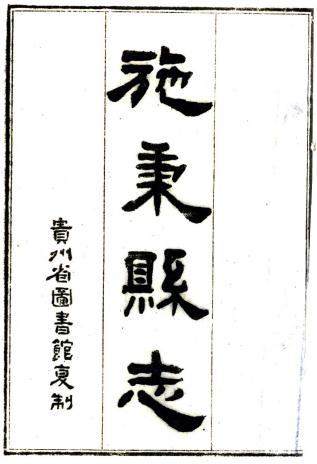 施秉縣志
貴州省圖書館复制